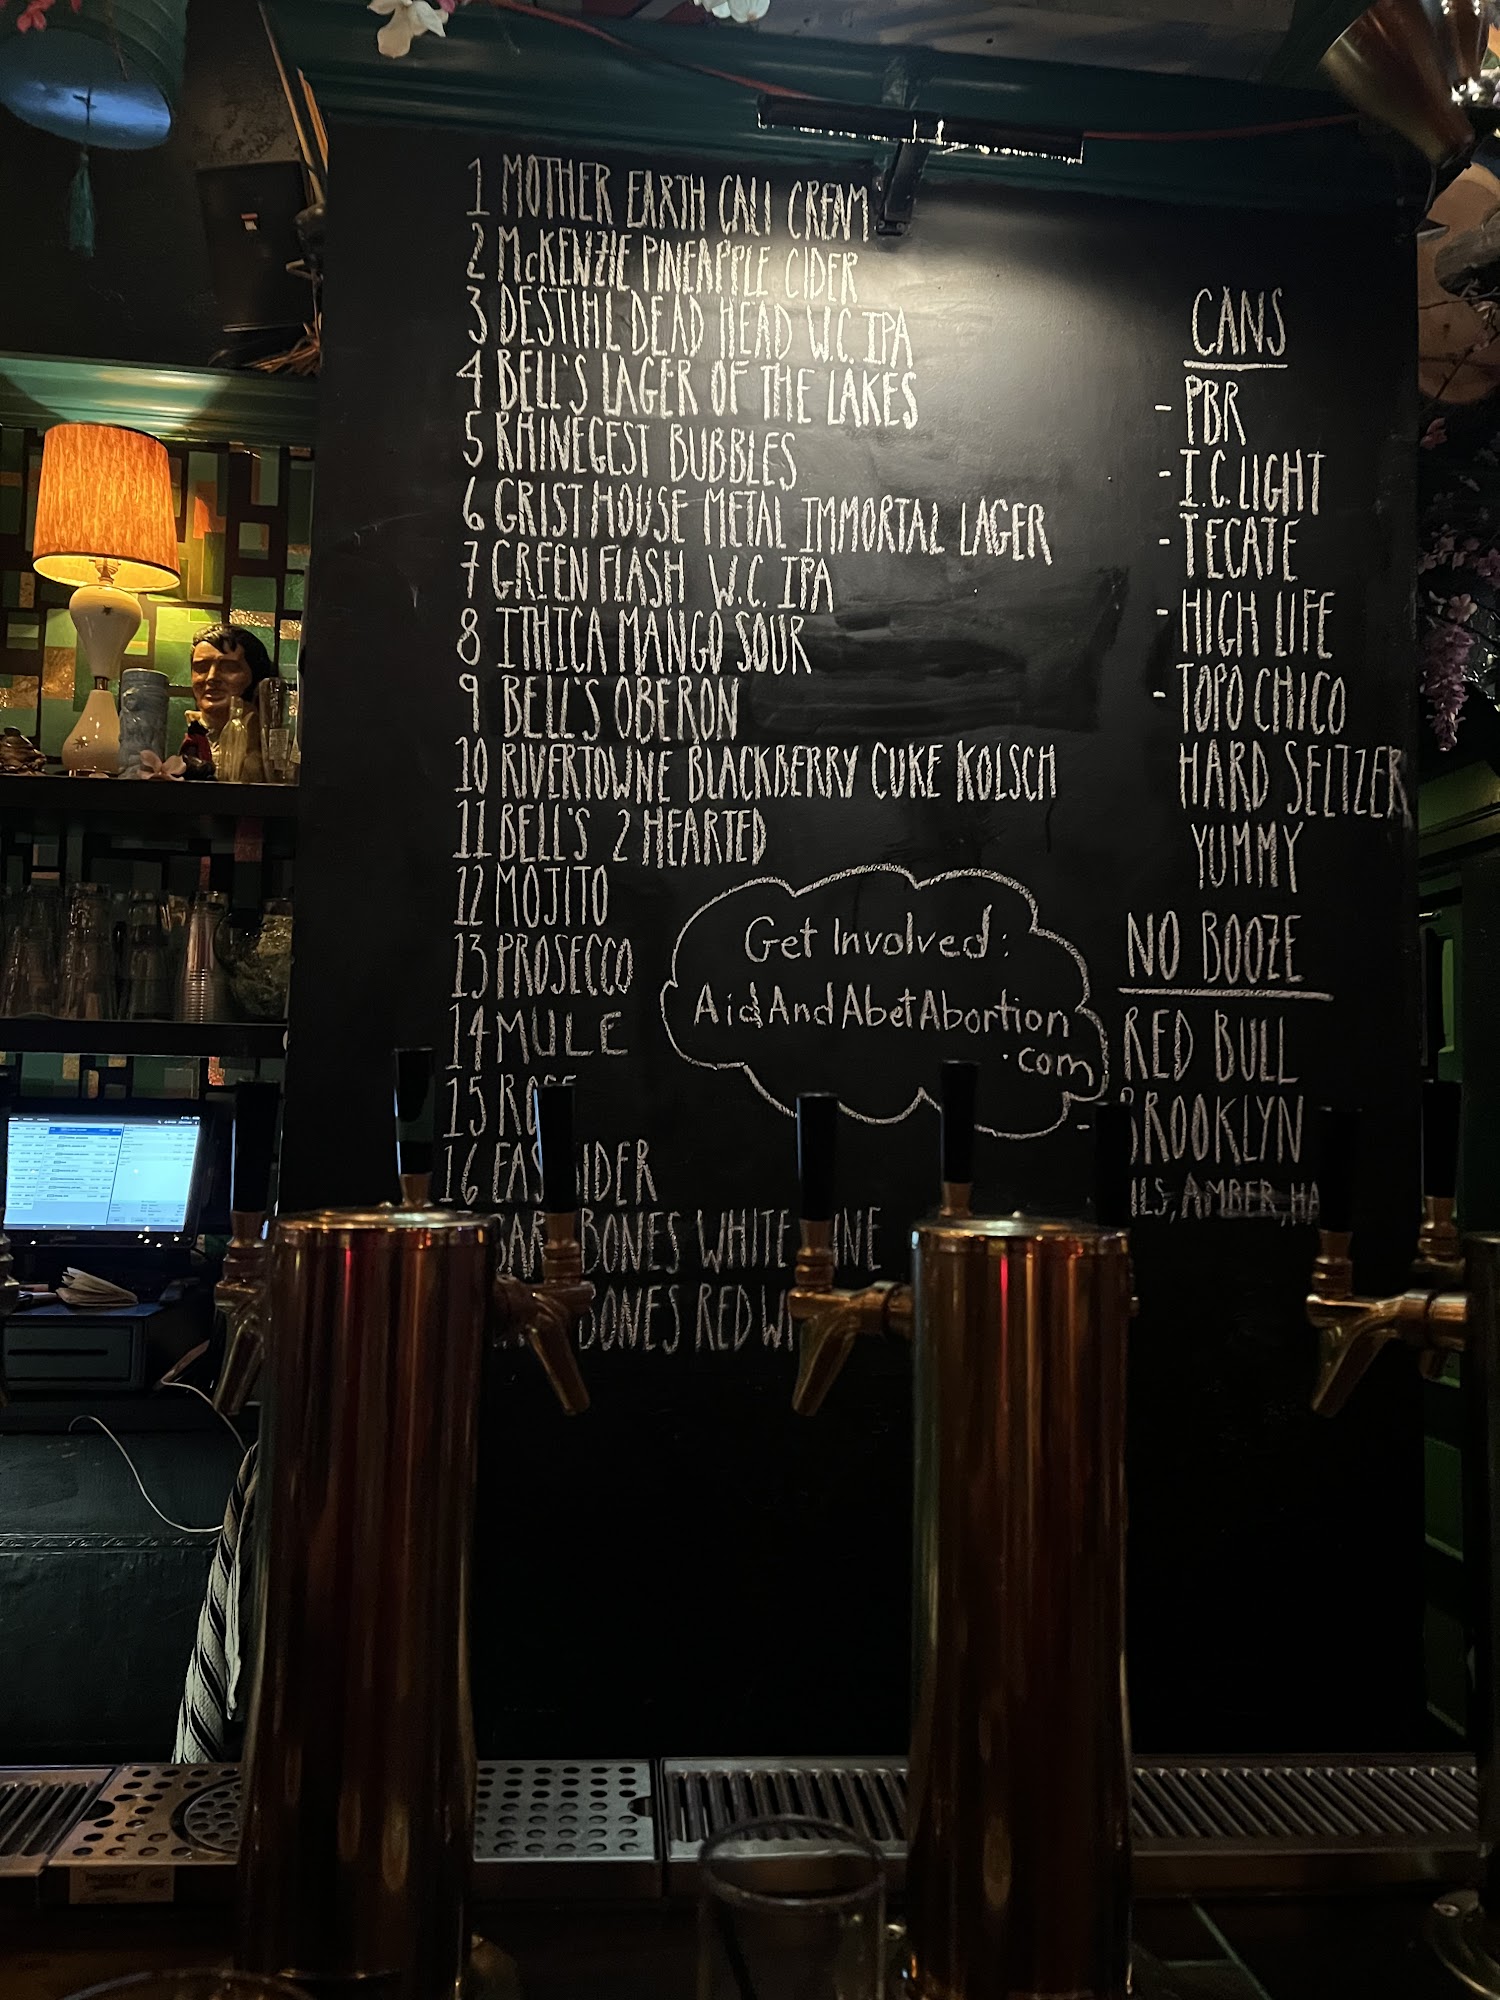 1 MOTHER EARTH CALI CREAM
2 McKENZIE PINEAPPLE CIDER
3 DESTIHL DEAD HEAD W.C. IPA
4 BELL'S LAGER OF THE LAKES
5 RHINEGEST BUBBLES
6 GRIST HOUSE METAL IMMORTAL LAGER
7 GREEN FLASH W.C. IPA
8 ITHICA MANGO SOUR
9 BELL'S OBERON
10 RIVERTOWNE BLACKBERRY CUKE KOLSCH
11 BELL'S 2 HEARTED
12 MOJITO
13 PROSECCO
14 MULE
15
16
BONES WHITE
BONES RED
Get Involved:
AidAndAbetAbortion
.com
CANS
- PBR
- I.C. LIGHT
- TECATE
- HIGH LIFE
- TOPO CHICO
HARD SELTZER
YUMMY
NO BOOZE
RED BULL
- BROOKLYN
AMBER,